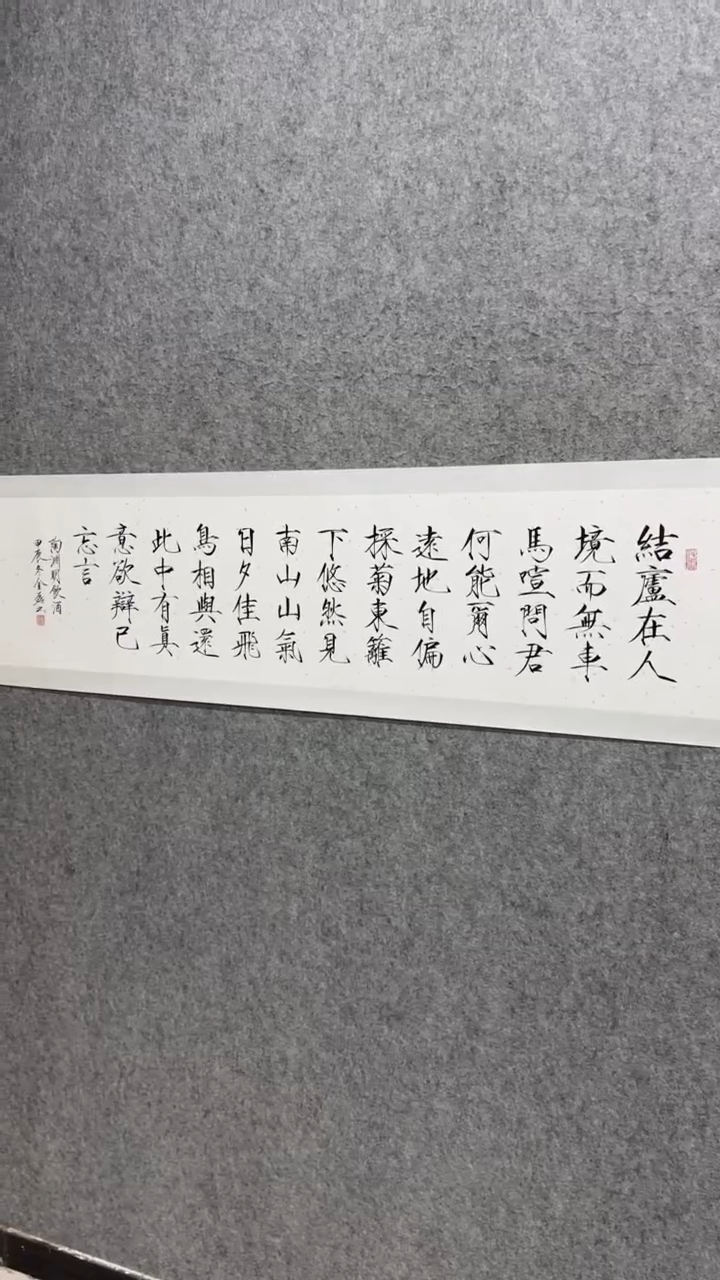 結廬在人
境而無車
馬喧問君
何能爾心
遠地自偏
採菊東籬
下悠然見
南山山氣
日夕佳飛
鳥相與還
此中有真
意欲辯已
忘言
陶淵明飲酒
甲辰冬金